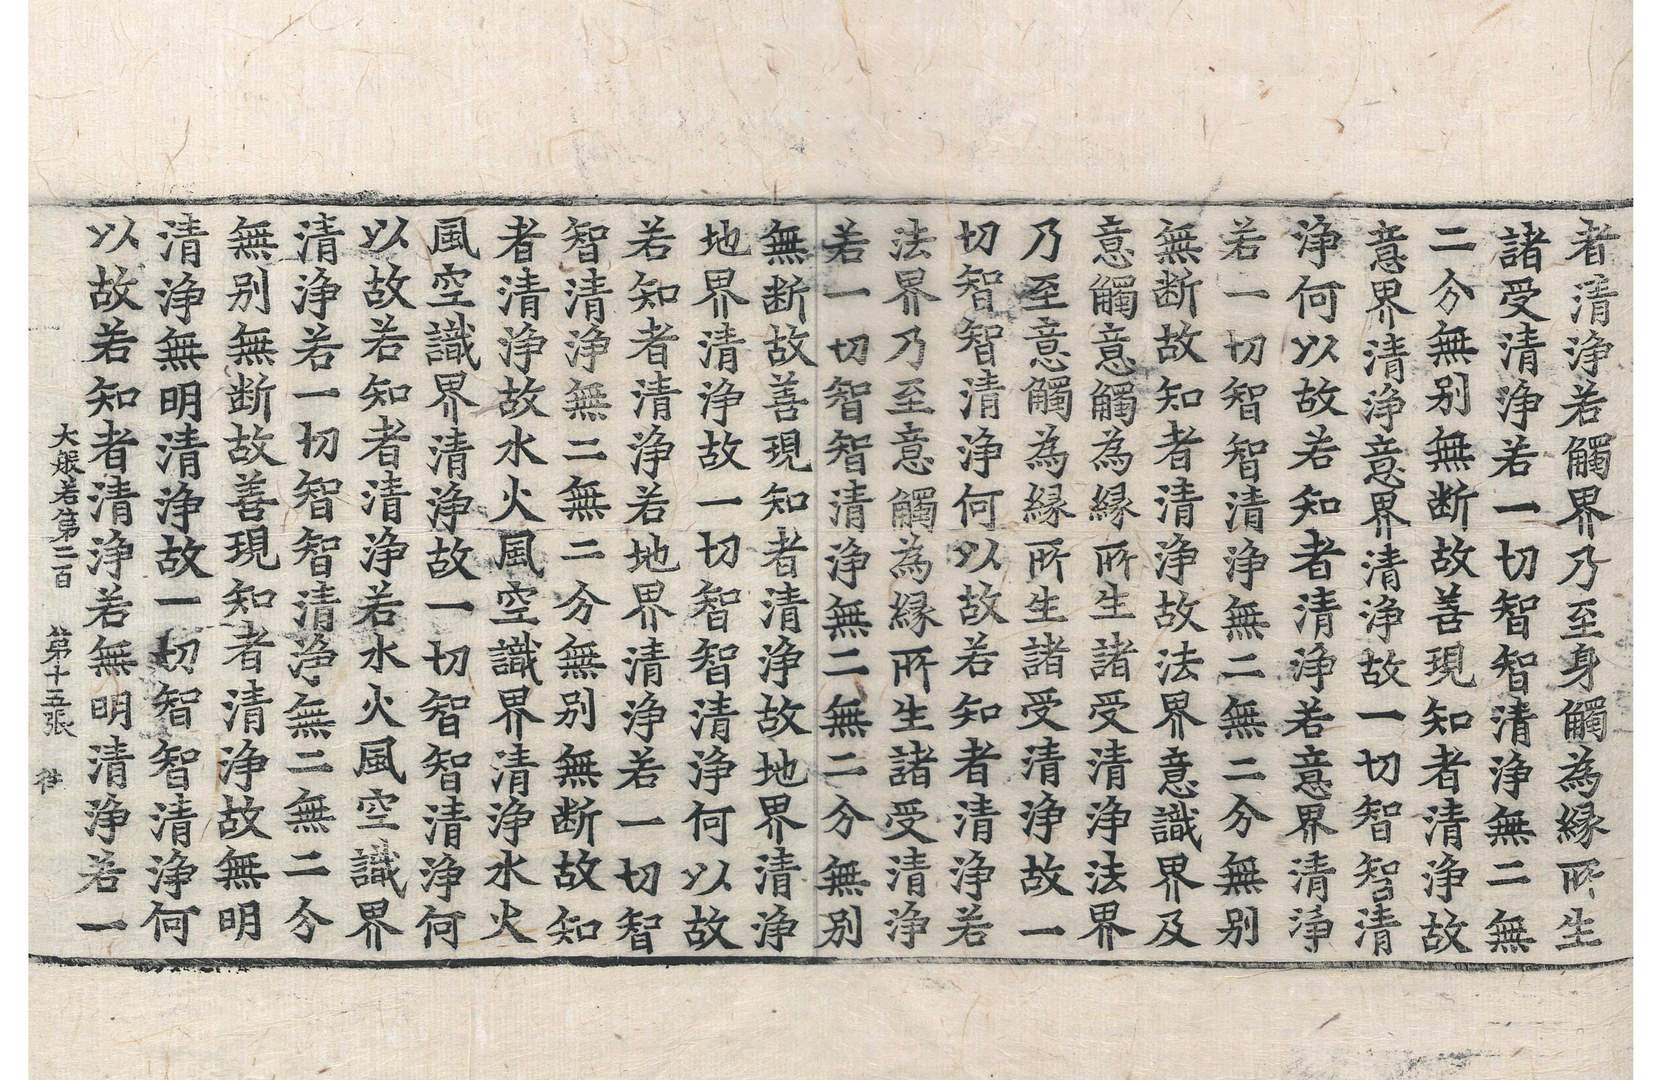 者清浄若觸界乃至身觸為縁所生
諸受清浄若一切智智清浄無二無
二分無别無断故善現知者清浄故
意界清浄意界清浄故一切智智清
浄何以故若知者清浄若意界清浄
若一切智智清浄無二無二分無别
無断故知者清浄故法界意識界及
意觸意觸為縁所生諸受清浄法界
乃至意觸為縁所生諸受清浄故一
切智智清浄何以故若知者清浄若
法界乃至意觸為縁所生諸受清浄
若一切智智清浄無二無二分無别
無断故善現知者清浄故地界清浄
地界清浄故一切智智清浄何以故
若知者清浄若地界清浄若一切智
智清浄無二無二分無别無断故知
者清浄故水火風空識界清浄水火
風空識界清浄故一切智智清浄何
以故若知者清浄若水火風空識界
清浄若一切智智清浄無二無二分
無别無断故善現知者清浄故無明
清浄無明清浄故一切智智清浄何
以故若知者清浄若無明清浄若一
大般若第二百 第十五張